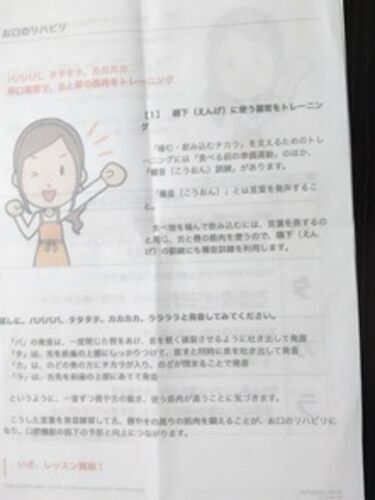 お口のリハビリ
パパパパ、タタタタ、カカカカ
早口言葉で、舌と唇の筋肉をトレーニング
【1】 嚥下(えんげ)に使う器官をトレーニン
グ
「噛む・飲み込むチカラ」を支えるためのトレ
ーニングには「食べる前の準備運動」のほか、
「構音(こうおん)訓練」があります。
「構音(こうおん)」とは言葉を発声するこ
と。
食べ物を噛んで飲み込むには、言葉を発するの
と同じ、舌と唇の筋肉を使うので、嚥下(えん
げ)の訓練にも構音訓練を利用します。
試しに、パパパパ、タタタタ、カカカカ、ララララと発音してみてください。
「パ」の発音は、一度閉じた唇をあけ、息を軽く破裂させるように吐き出して発音
「タ」は、舌を前歯の上部にしっかりつけて、放すと同時に息を吐き出して発音
「カ」は、のどの奥の方にチカラが入り、のどが閉まることで発音
「ラ」は、舌先を前歯の上部にあてて発音
というように、一音ずつ唇や舌の動き、使う筋肉が違うことに気づきます。
こうした言葉を発音練習してた、唇やその周りの筋肉を鍛えることが、お口のリハビリに
なり、口腔機能の低下の予防と向上につながります。
いざ、レッスン開始!